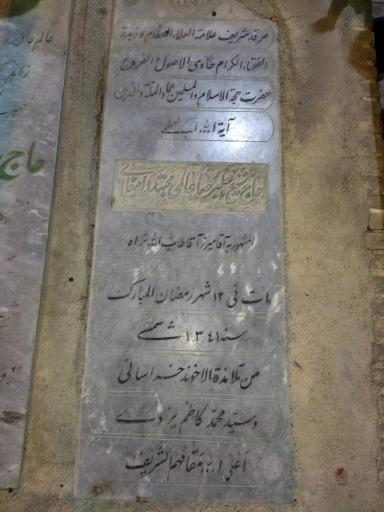 مرقد شریف علامة العلماء العظام و زبدة
الفقهاء الکرام حاوی الاصول الفروع
حضرت حجة الاسلام والمسلمین عمادالملة والدین
آیة الله العظمی
حاج شیخ علیرضا عالمی مجتهد دامغانی
المشهور به آقا میرزا آقا طاب الله ثراه
مات فی ۱۲ شهر رمضان المبارک
سنه ۱۳۴۱ شمسی
من تلامذة الاخوند خراسانی
و سید محمد کاظم یزدی
اعلی الله مقامهم الشریف
عالم
حاج